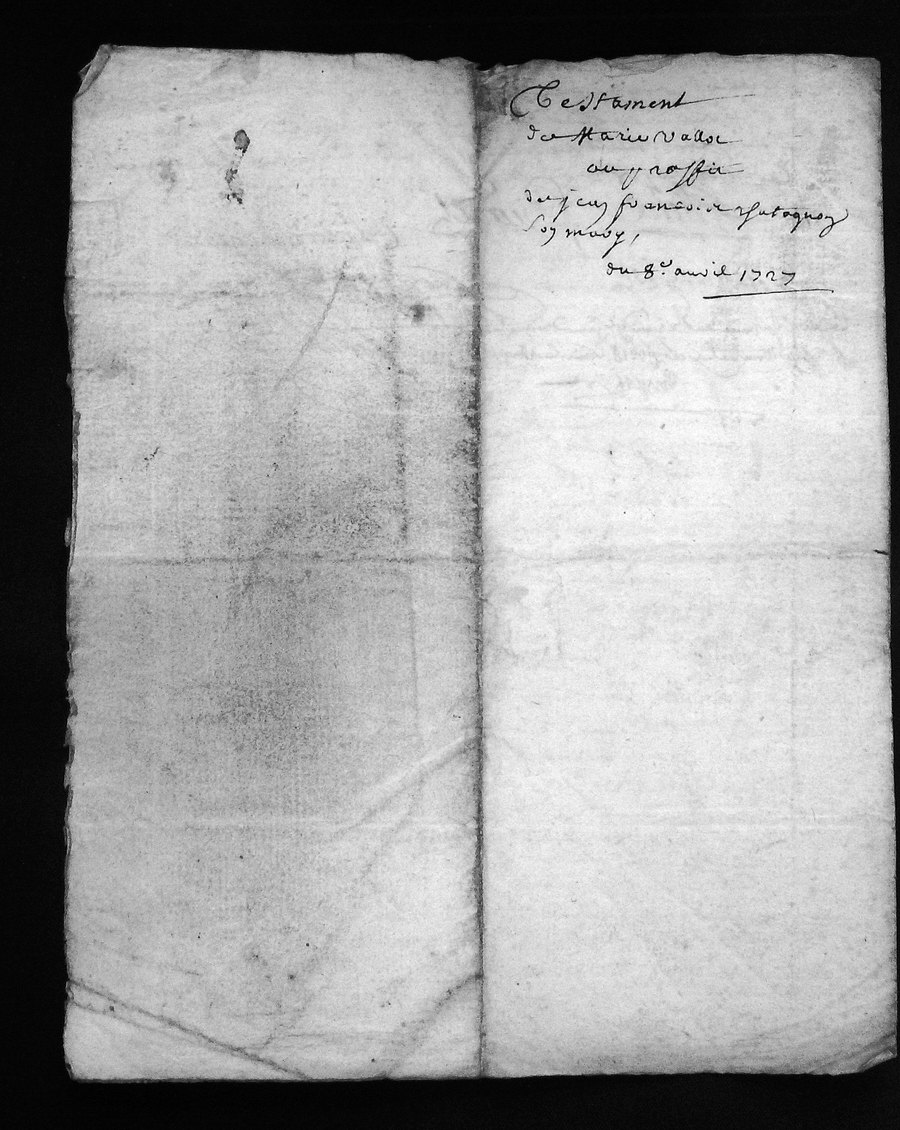 Testament
de Marie Vallet
au proffit
de jean francois Chatagnon
son mary,
du 8e. avril 1727